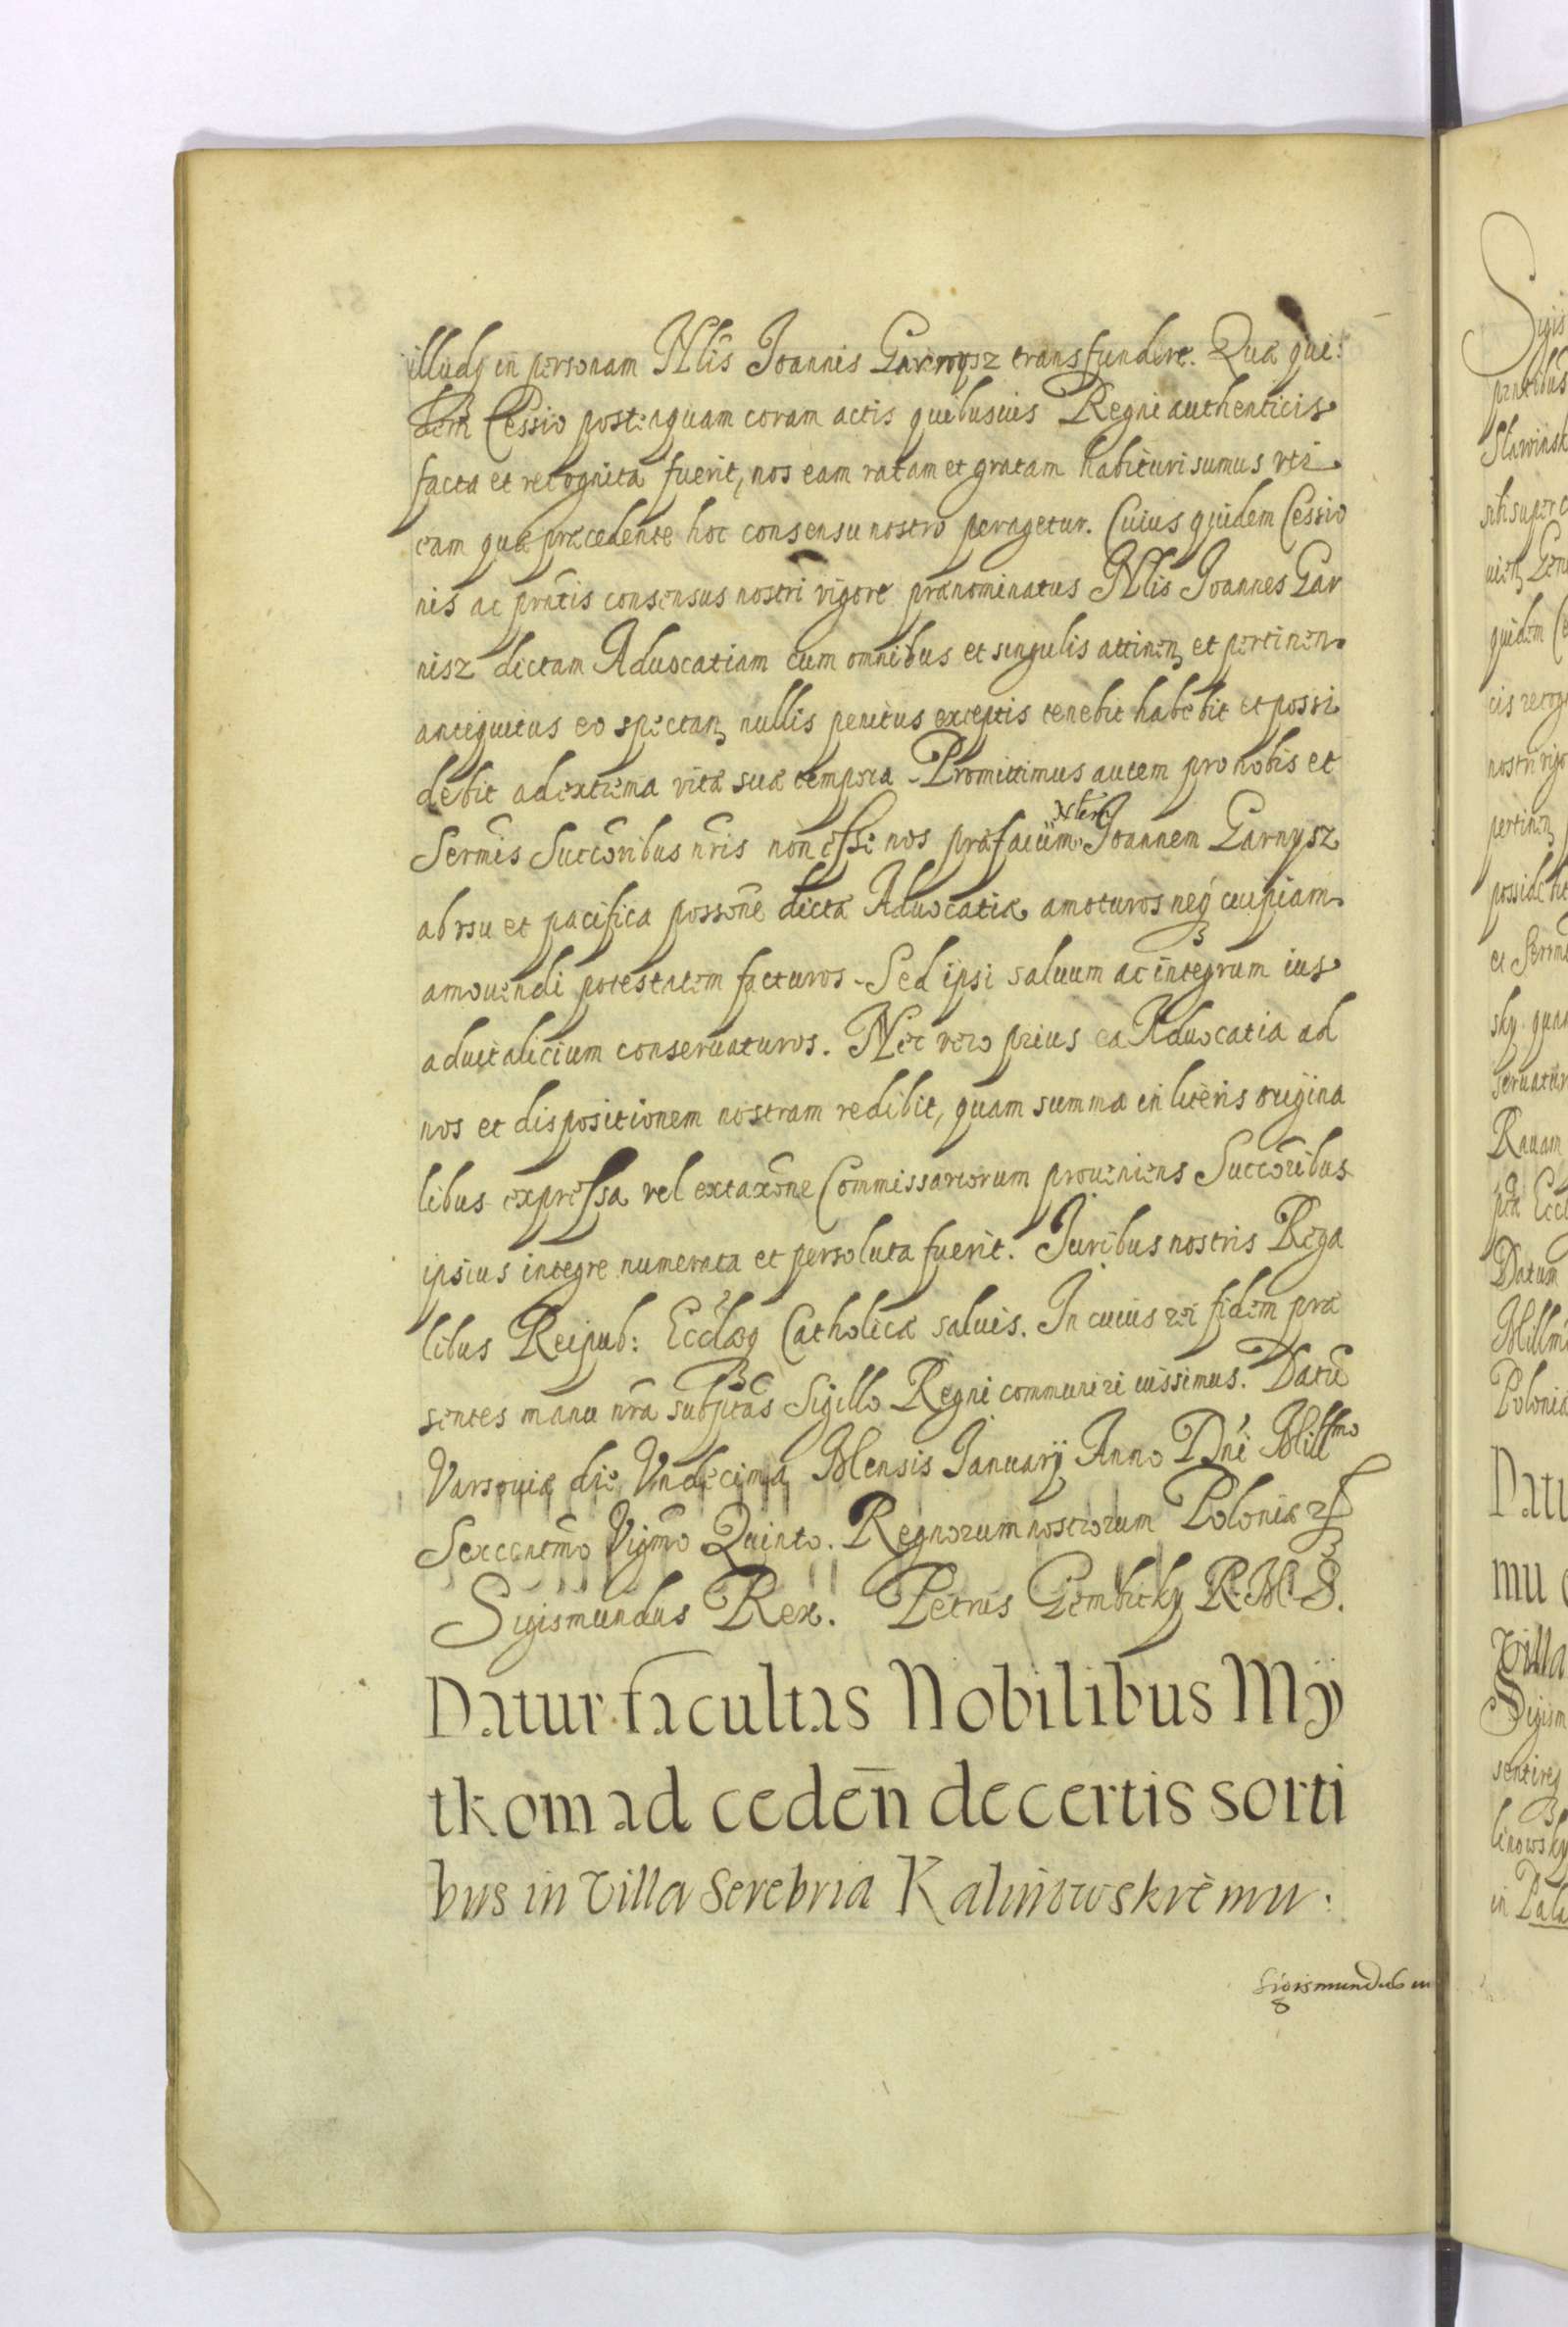 illudq in personam Nlis Joannis Garnysz transfundere. Quæ qui:
dem Cessio posteaquam coram actis quibusuis Regni authenticis
facta et recognita fuerit, nos eam ratam et gratam habituri sumus uti
eam quæ præcedente hoc consensu nostro peragetur. Cuius quidem Cessio
nis ac pñtis consensus nostri vigore prænominatus Nlis Joannes Gar
nisz dictam Aduocatiam cum omnibus et singulis attinen et pertinen
antiquitus eo spectan nullis penitus exceptis tenebit habebit et possi
debit ad extrema vitæ suæ tempora. Promittimus autem pro nobis et
Serm̃is Succõribus nr̃is non esse nos præfatum Nlem Joannem Garnysz
ab usu et pacifica possõne dictæ Aduocatiæ amoturos neq cuipiam
amouendi potestatem facturos. Sed ipsi saluum ac integrum ius
aduitalicium conseruaturos. Nec vero prius ea Aduocatia ad
nos et dispositionem nostram redibit, quam summa in literis origina
libus expressa vel ex taxõne Commissariorum proueniens Succõribus
ipsius integre numerata et persoluta fuerit. Juribus nostris Rega
libus Reipub: Eccl̃æq Catholicæ saluis. In cuius rei fidem præ
sentes manu nr̃a subscptas Sigillo Regni communiri iussimus. Datũ
Varsouiæ die Vndecima Mensis Januarij Anno Dñi Millsmo
Sexcentm̃o Vigm̃o Quinto. Regnorum nostrorum Poloniæ
Sigismundus Rex. Petrus Gembicky R. M. S.
Datur facultas Nobilibus Mÿ
tkom ad cedeñ de certis sorti
bus in Villa Serebria Kalinowskiemu.
Sigismundus